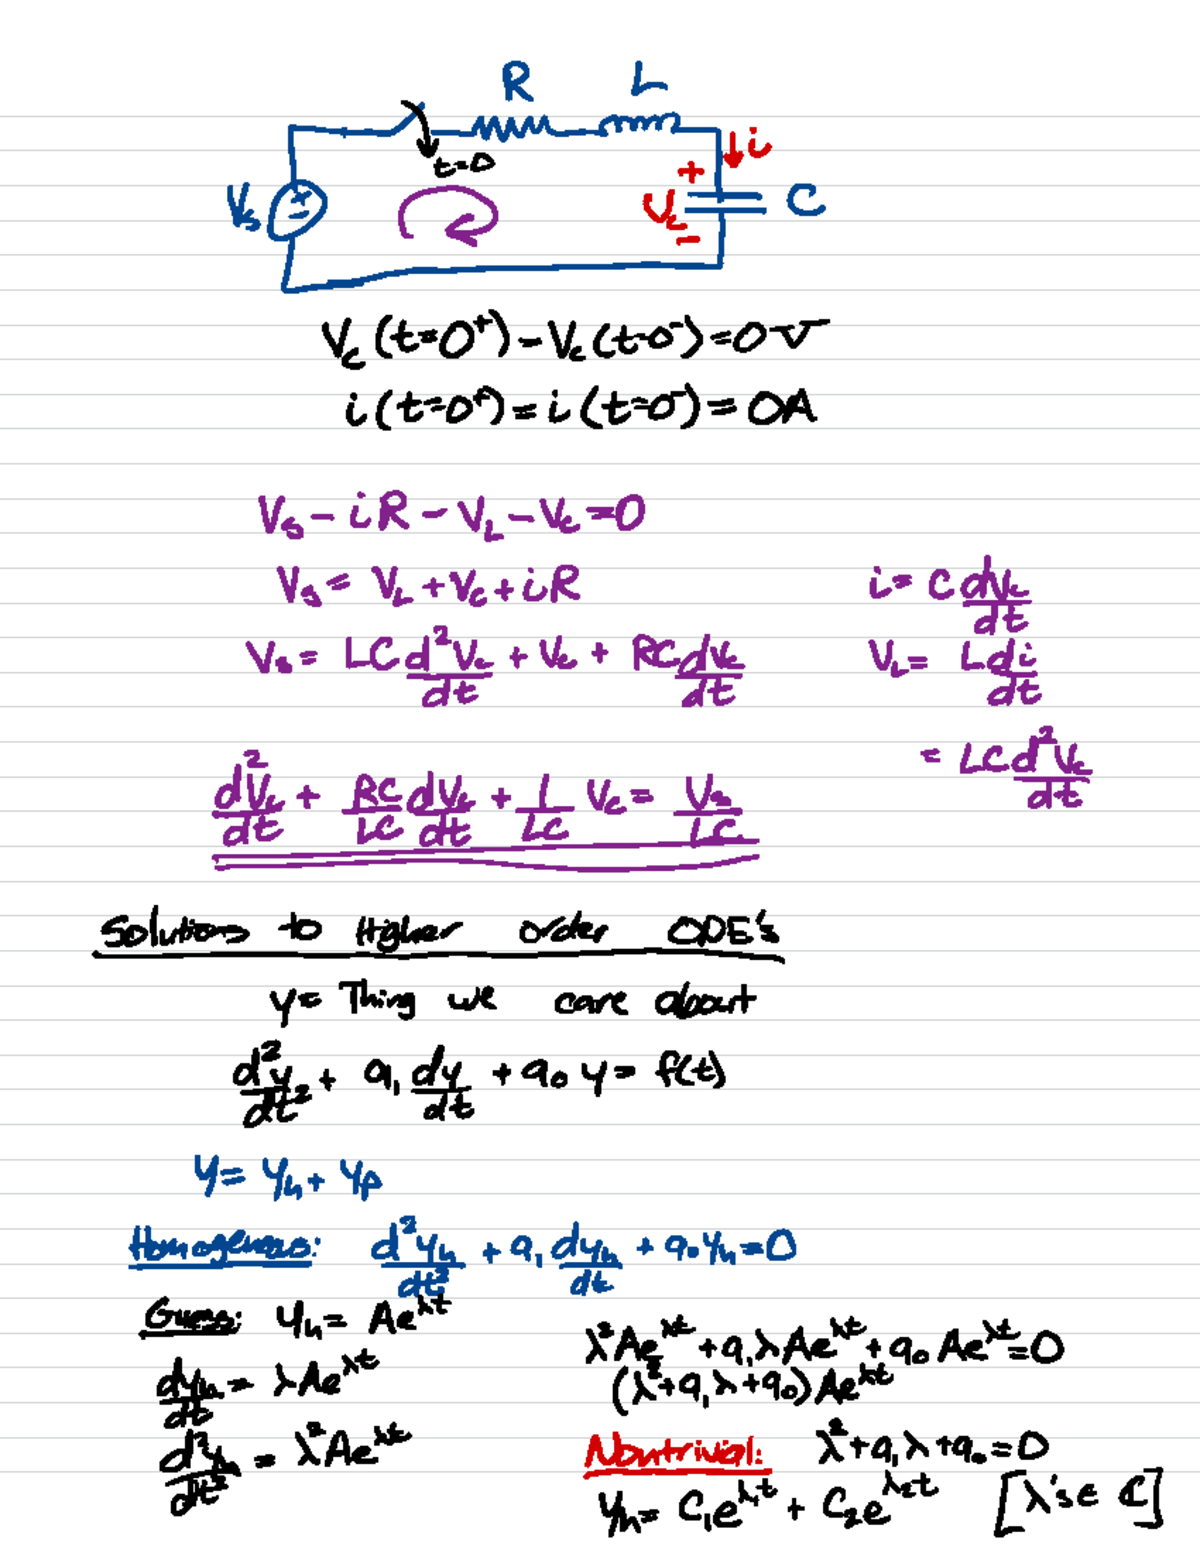 R L
t=0
i
Vs + -
+ Vc - C
Vc(t=0⁺)-Vc(t=0⁻)=0V
i(t=0⁺)=i(t=0⁻)=0A
Vs-iR-VL-Vc=0
Vs= VL+Vc+iR i= C dVc/dt
Vs= LC d²Vc/dt + Vc + RC dVc/dt VL= L di/dt
= LC d²Vc/dt
d²Vc/dt + RC/LC dVc/dt + 1/LC Vc= Vs/LC
Solutions to Higher order ODE's
y= Thing we care about
d²y/dt² + a₁ dy/dt + a₀ y= f(t)
y= yh+ yp
Homogeneous: d²yh/dt² + a₁ dyh/dt + a₀yh=0
Guess: yh= Ae^λt
λ²Ae^λt+a₁λAe^λt+a₀Ae^λt=0
dyh/dt= λAe^λt (λ²+a₁λ+a₀)Ae^λt
d²yh/dt² = λ²Ae^λt Nontrivial: λ²+a₁λ+a₀=0
yh= C₁e^λ₁t + C₂e^λ₂t [λ's ∈ ℂ]